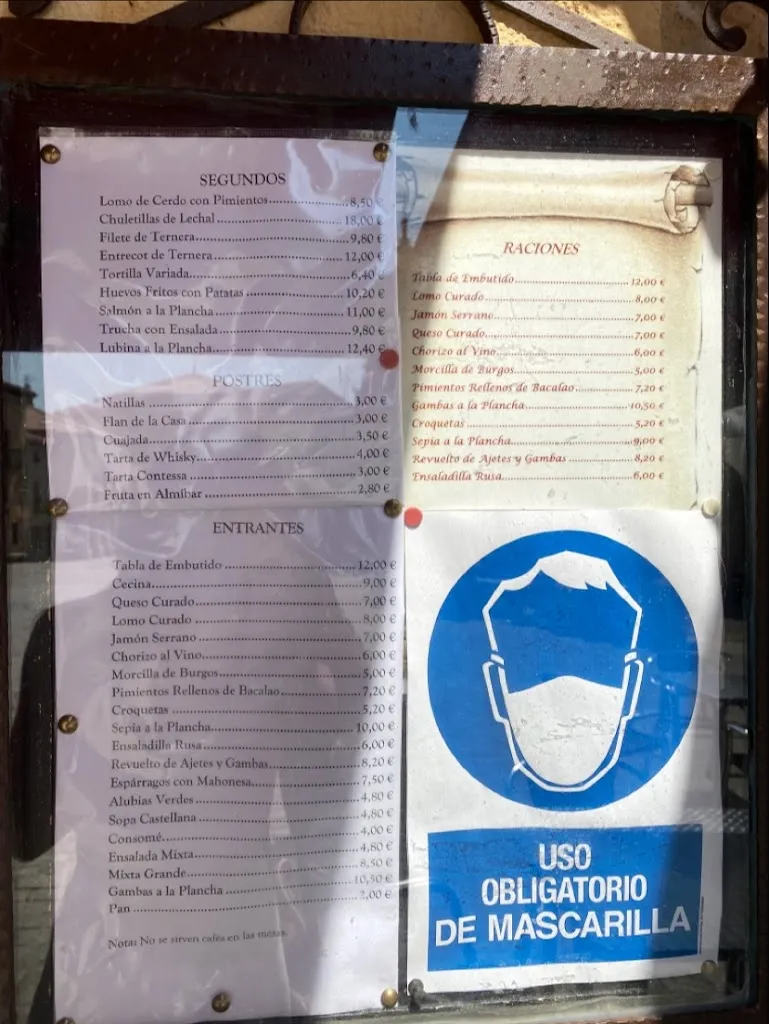 SEGUNDOS
Lomo de Cerdo con Pimientos 8,50 €
Chuletillas de Lechal 18,00 €
Filete de Ternera 9,80 €
Entrecot de Ternera 12,00 €
Tortilla Variada 6,40 €
Huevos Fritos con Patatas 10,20 €
Salmón a la Plancha 11,00 €
Trucha con Ensalada 9,80 €
Lubina a la Plancha 12,40 €
POSTRES
Natillas 3,00 €
Flan de la Casa 3,00 €
Cuajada 3,50 €
Tarta de Whisky 4,00 €
Tarta Contessa 3,00 €
Fruta en Almíbar 2,80 €
ENTRANTES
Tabla de Embutido 12,00 €
Cecina 9,00 €
Queso Curado 7,00 €
Lomo Curado 8,00 €
Jamón Serrano 7,00 €
Chorizo al Vino 6,00 €
Morcilla de Burgos 5,00 €
Pimientos Rellenos de Bacalao 7,20 €
Croquetas 5,20 €
Sepia a la Plancha 10,00 €
Ensaladilla Rusa 6,00 €
Revuelto de Ajetes y Gambas 8,20 €
Espárragos con Mahonesa 7,50 €
Alubias Verdes 4,80 €
Sopa Castellana 4,80 €
Consomé 4,00 €
Ensalada Mixta 4,80 €
Mixta Grande 8,50 €
Gambas a la Plancha 10,50 €
Pan 2,00 €
Nota: No se sirven cafés en las mesas.
RACIONES
Tabla de Embutido 12,00 €
Lomo Curado 8,00 €
Jamón Serrano 7,00 €
Queso Curado 7,00 €
Chorizo al Vino 6,00 €
Morcilla de Burgos 5,00 €
Pimientos Rellenos de Bacalao 7,20 €
Gambas a la Plancha 10,50 €
Croquetas 5,20 €
Sepia a la Plancha 9,00 €
Revuelto de Ajetes y Gambas 8,20 €
Ensaladilla Rusa 6,00 €
USO
OBLIGATORIO
DE MASCARILLA